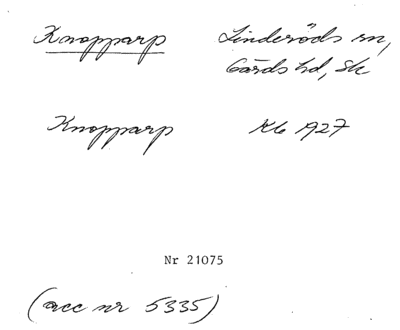 Knopparp Linderöds sn,
Gärds hd, Sk
Knopparp Kb 1927
Nr 21075
(acc nr 5335)